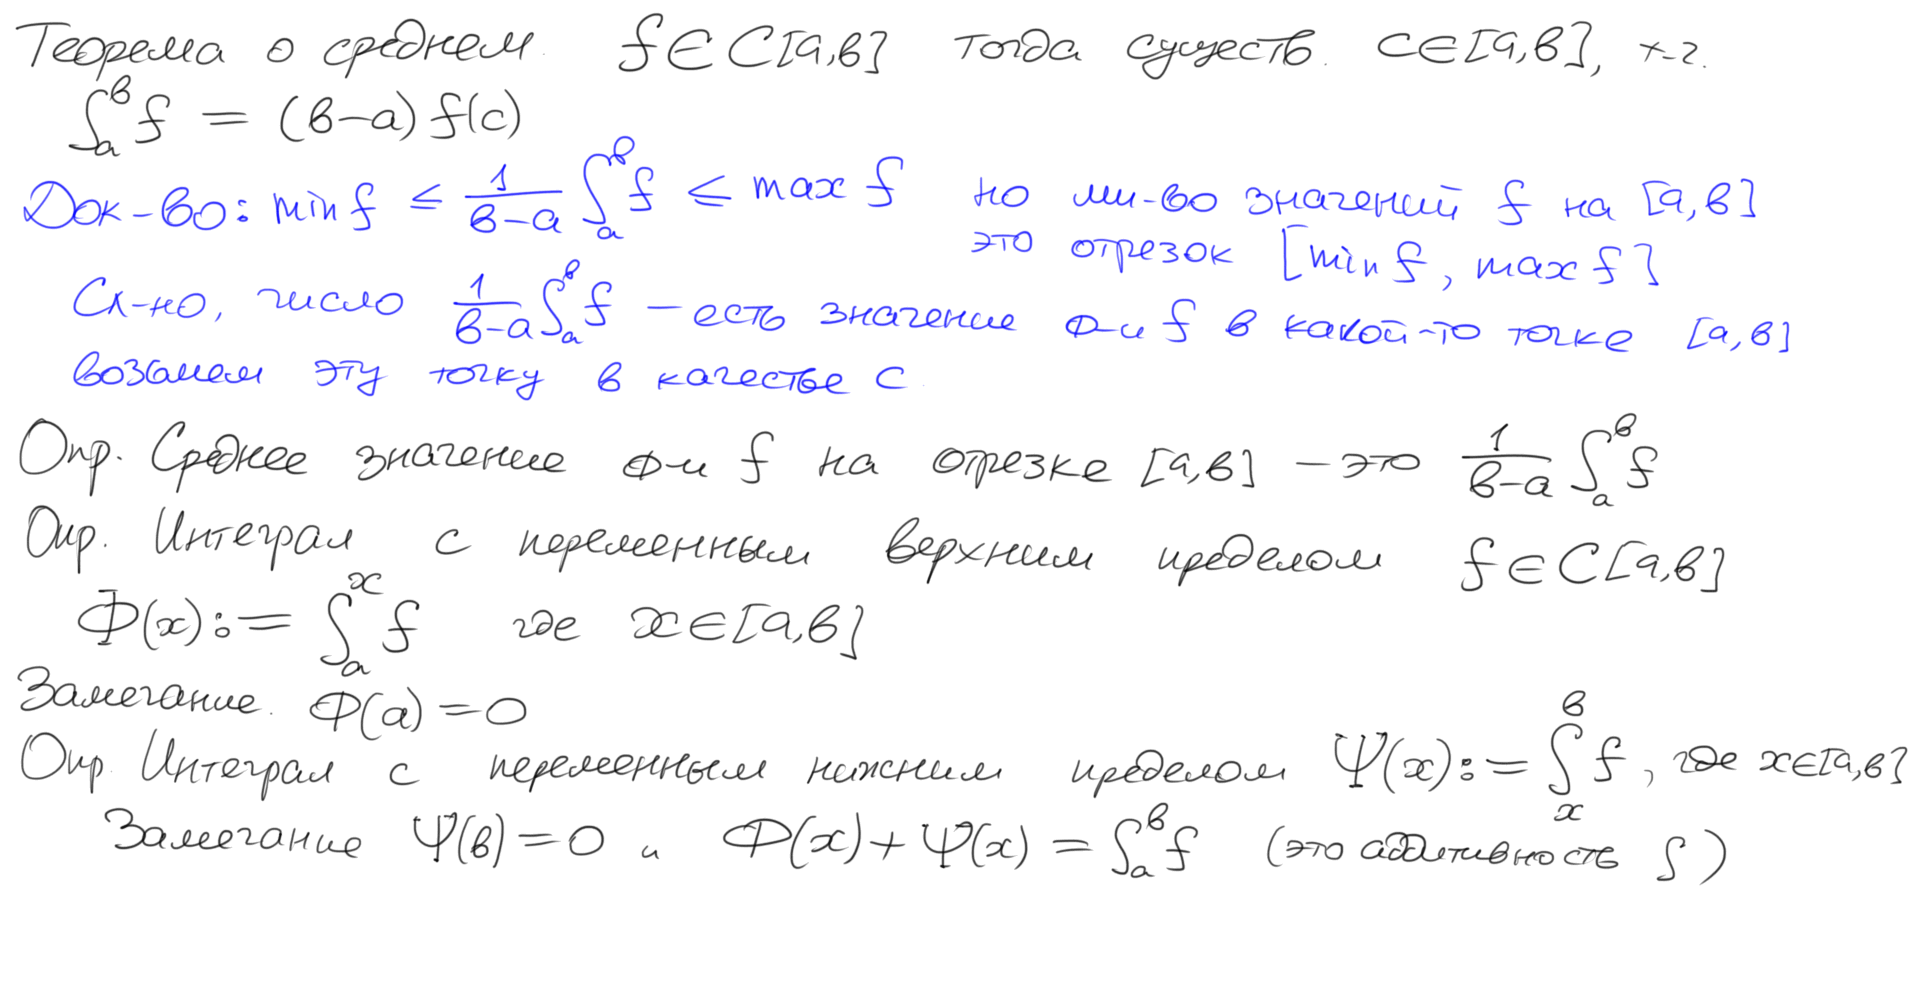 Теорема о среднем. f∈C[a,b] тогда существ. c∈[a,b], т.ч.
∫ₐᵇ f = (b−a) f(c)
Док-во: min f ≤ 1/(b−a) ∫ₐᵇ f ≤ max f но мн-во значений f на [a,b]
это отрезок [min f, max f]
Сл-но, число 1/(b−a) ∫ₐᵇ f − есть значение ф-и f в какой-то точке [a,b]
возьмем эту точку в качестве c
Опр. Среднее значение ф-и f на отрезке [a,b] − это 1/(b−a) ∫ₐᵇ f
Опр. Интеграл с переменным верхним пределом f∈C[a,b]
Φ(x):= ∫ₐˣ f где x∈[a,b]
Замечание. Φ(a)=0
Опр. Интеграл с переменным нижним пределом Ψ(x):= ∫ₓᵇ f, где x∈[a,b]
Замечание Ψ(b)=0 и Φ(x)+Ψ(x) = ∫ₐᵇ f (это аддитивность ∫)